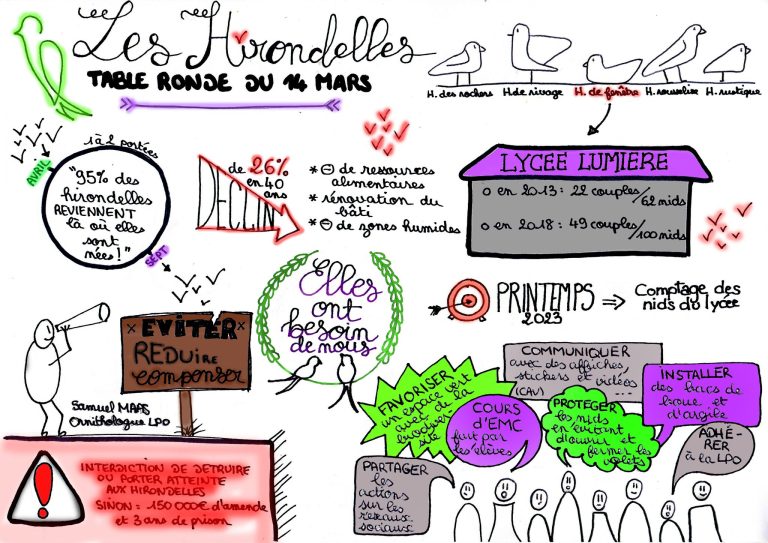 Les Hirondelles
TABLE RONDE DU 14 MARS
H. des rochers
H. de rivage
H. de fenêtre
H. rousseline
H. rustique
AVRIL
1 à 2 portées
"95% des
hirondelles
REVIENNENT
là où elles
sont
nées !"
SEPT
DECLIN
de 26%
en 40
ans
* ⊖ de ressources
alimentaires
* rénovation du
bâti
* ⊖ de zones humides
LYCEE LUMIERE
o en 2013 : 22 couples/
62 nids
o en 2018 : 49 couples/
100 nids
Elles
ont
besoin
de nous
PRINTEMPS
2023
⇒ Comptage des
nids du lycée
x EVITER x
REDuire
compenser
Samuel MAAS
Ornithologue LPO
INTERDICTION DE DETRUIRE
OU PORTER ATTEINTE
AUX HIRONDELLES
SINON : 150 000€ d'amende
et 3 ans de prison
FAVORISER
un espace vert
avec de la
biodiver
sité
COURS
d'EMC
fait par
les élèves
COMMUNIQUER
avec des affiches,
stickers et vidéos
(CAV) ...
PROTEGER
les nids
en évitant
d'ouvrir et
fermer les
volets
INSTALLER
des bacs de
boue et
d'argile
ADHÉ-
RER
à la LPO
PARTAGER
les
actions
sur les
réseaux
sociaux